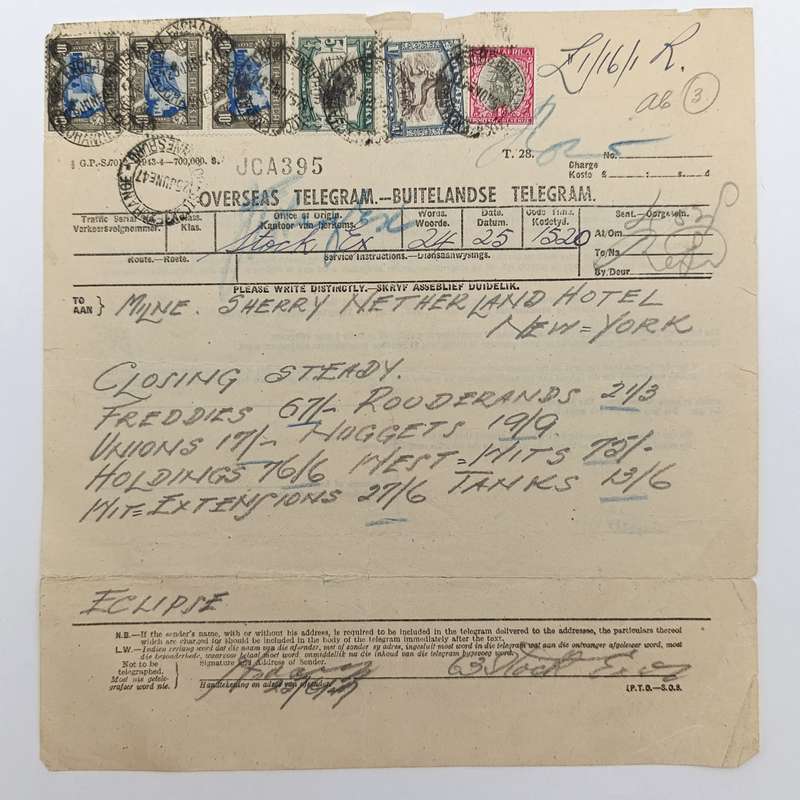 £1/16/1 R.
ab 3
½ G.P.-S.7012 1943-4—700,000. S.
JCA395
T. 28.
Charge No.
Koste £ : s. : d
OVERSEAS TELEGRAM.—BUITELANDSE TELEGRAM.
Traffic Serial Class. Office of Origin. Words. Date. Code Time. Sent.—Oorgesein.
Verkeersvolgnommer. Klas. Kantoor van herkoms. Woorde. Datum. Kodetyd.
Stock Ex 24 25 1520
At/Om
To/Na
By/Deur
Route.—Roete. Service Instructions.—Diensaanwysings.
PLEASE WRITE DISTINCTLY.—SKRYF ASSEBLIEF DUIDELIK.
TO
AAN } MILNE. SHERRY NETHERLAND HOTEL
NEW=YORK
CLOSING STEADY.
FREDDIES 67/- ROODERANDS 21/3
UNIONS 17/- NUGGETS 19/9
HOLDINGS 76/6 WEST=WITS 75/-
WIT=EXTENSIONS 27/6 TANKS 13/6
ECLIPSE
N.B.—If the sender's name, with or without his address, is required to be included in the telegram delivered to the addressee, the particulars thereof
which are charged for should be included in the body of the telegram immediately after the text.
L.W.—Indien verlang word dat die naam van die afsender, met of sonder sy adres, ingesluit moet word in die telegram wat aan die ontvanger afgelewer word, moet
die besonderhede, waarvoor betaal moet word, onmiddellik na die inhoud van die telegram bygevoeg word.
Not to be
telegraphed.
Moet nie getele-
grafeer word nie.
Signature and Address of Sender.
63 Stock
Handtekening en adres van afsender
(P.T.O.—S.O.S.